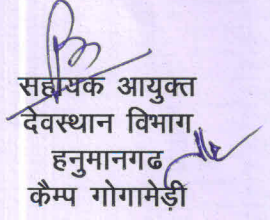 सहायक आयुक्त
देवस्थान विभाग
हनुमानगढ
कैम्प गोगामेड़ी